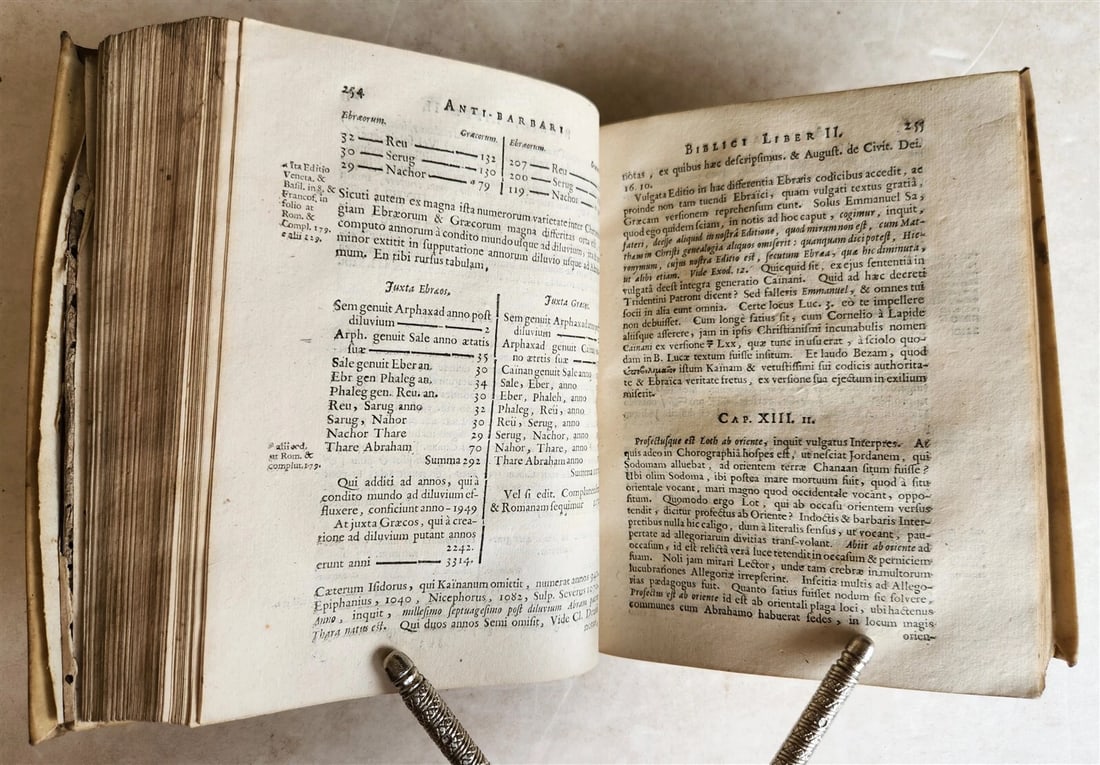 254
ANTI-BARBARI
Ebræorum. Græcorum. Ebræorum.
32 — Reu — 132 207 — Reu
30 — Serug — 130 200 — Serug
29 — Nachor — *79 119 — Nachor
* Ita Editio
Veneta. &
Basil. in 8. &
Francof. in
folio at
Rom. &
Compl. 179.
* alii 229.
Sicuti autem ex magna ista numerorum varietate inter
giam Ebræorum & Græcorum magna differitas orta
computo annorum à condito mundo usque ad diluvium,
minor extitit in supputatione annorum diluvio usque ad
mum. En tibi rursus tabulam,
Juxta Ebræos.
Sem genuit Arphaxad anno post
diluvium — 2
Arph. genuit Sale anno ætatis
suæ — 35
Sale genuit Eber an. 30
Ebr gen Phaleg an. 34
Phaleg gen. Reu. an. 30
Reu, Sarug anno 32
Sarug, Nahor 30
Nachor Thare 29
Thare Abraham 70
Summa 292
Juxta Græcos
Sem genuit Arphaxad
diluvium —
Arphaxad genuit
no ætrtis suæ —
Caïnan genuit Sale
Sale, Eber, anno
Eber, Phaleh, anno
Phaleg, Reü, anno
Reü, Serug, anno
Serug, Nachor, anno
Nahor, Thare, anno
Thare Abraham anno
Summa
* alii æd.
ut Rom. &
complut. 179.
Qui additi ad annos, qui à
condito mundo ad diluvium ef-
fluxere, conficiunt anno - 1949
At juxta Græcos, qui à crea-
tione ad diluvium putant annos
2242.
erunt anni — 3314.
Vel si edit.
& Romanam sequimur
Cæterum Isidorus, qui Kaïnanum omittit, numerat annos
Epiphanius, 1040, Nicephorus, 1082, Sulp. Severus
Anno, inquit, millesimo septuagesimo post diluvium Abram
Thara natus est. Qui duos annos Semi omisit, Vide Cl.
BIBLICI LIBER II. 255
notas, ex quibus hæc descripsimus. & August. de Civit. Dei.
16. 10.
Vulgata Editio in hac differentia Ebræis codicibus accedit, ac
proinde non tam tuendi Ebraïci, quam vulgati textus gratiâ,
Græcam versionem reprehensum eunt. Solus Emmanuel Sa,
quod ego quidem sciam, in notis ad hoc caput, cogimur, inquit,
fateri, deesse aliquid in nostrâ Editione, quod mirum non est, cum Mat-
thæm in Christi genealogia aliquos omiserit: quanquam dici potest, Hie-
ronymum, cujus nostra Editio est, secutum Ebræa, quæ hic diminuta,
ut alibi etiam. Vide Exod. 12. Quicquid sit, ex ejus sententia in
vulgatâ deest integra generatio Cainani. Quid ad hæc decreti
Tridentini Patroni dicent? Sed falleris Emmanuel, & omnes tui
socii in alia eunt omnia. Certe locus Luc. 3. eò te impellere
non debuisset. Cum longè satius sit, cum Cornelio à Lapide
aliisque asserere, jam in ipsis Christianismi incunabulis nomen
Cainani ex versione Lxx, quæ tunc in usu erat, à sciolo quo-
dam in B. Lucæ textum fuisse insitum. Et laudo Bezam, quod
istum Kaïnam & vetustissimi sui codicis authorita-
te & Ebraïca veritate fretus, ex versione sua ejectum in exilium
miserit.
CAP. XIII. 11.
Profectusque est Loth ab oriente, inquit vulgatus Interpres. At
quis adeo in Chorographiâ hospes est, ut nesciat Jordanem, qui
Sodomam alluebat, ad orientem terræ Chanaan situm fuisse?
Ubi olim Sodoma, ibi postea mare mortuum fuit, quod à situ
orientale vocant, mari magno quod occidentale vocant, oppo-
situm. Quomodo ergo Lot, qui ab occasu orientem versus
tendit, dicitur profectus ab Oriente? Indoctis & barbaris Inter-
pretibus nulla hic caligo, dum à literalis sensus, ut vocant, pau-
pertate ad allegoriarum divitias trans-volant. Abiit ab oriente ad
occasum, id est relictâ verâ luce tetendit in occasum & perniciem
suam. Noli jam mirari Lector, unde tam crebræ in multorum
lucubrationes Allegoriæ irrepserint. Inscitia multis ad Allego-
rias pædagogus fuit. Quanto satius fuisset nodum sic solvere,
Profectus est ab oriente id est ab orientali plaga loci, ubi hactenus
communes cum Abrahamo habuerat sedes, in locum magis
orien-